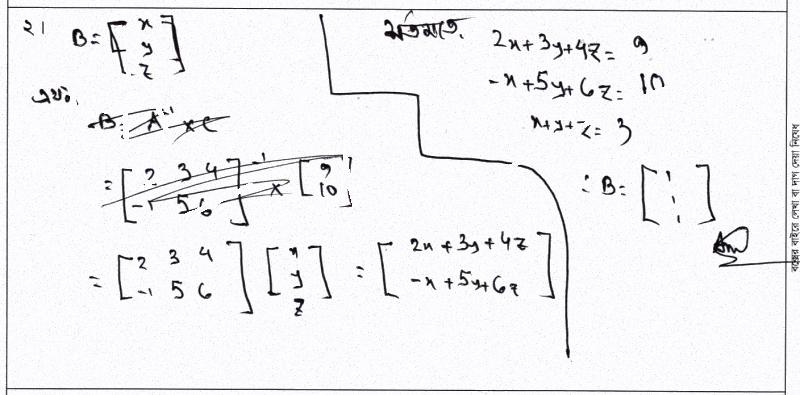 ২।
B = [x y z]
এখন,
B = A⁻¹ × C
= [2 3 4 -1 5 6]⁻¹ × [9 10]
= [2 3 4 -1 5 6] [x y z] = [2x + 3y + 4z -x + 5y + 6z]
2x + 3y + 4z = 9
-x + 5y + 6z = 10
x + y + z = 3
∴ B = [1 1 1]
Ans
বক্সের বাইরে লেখা বা দাগ দেয়া নিষেধ